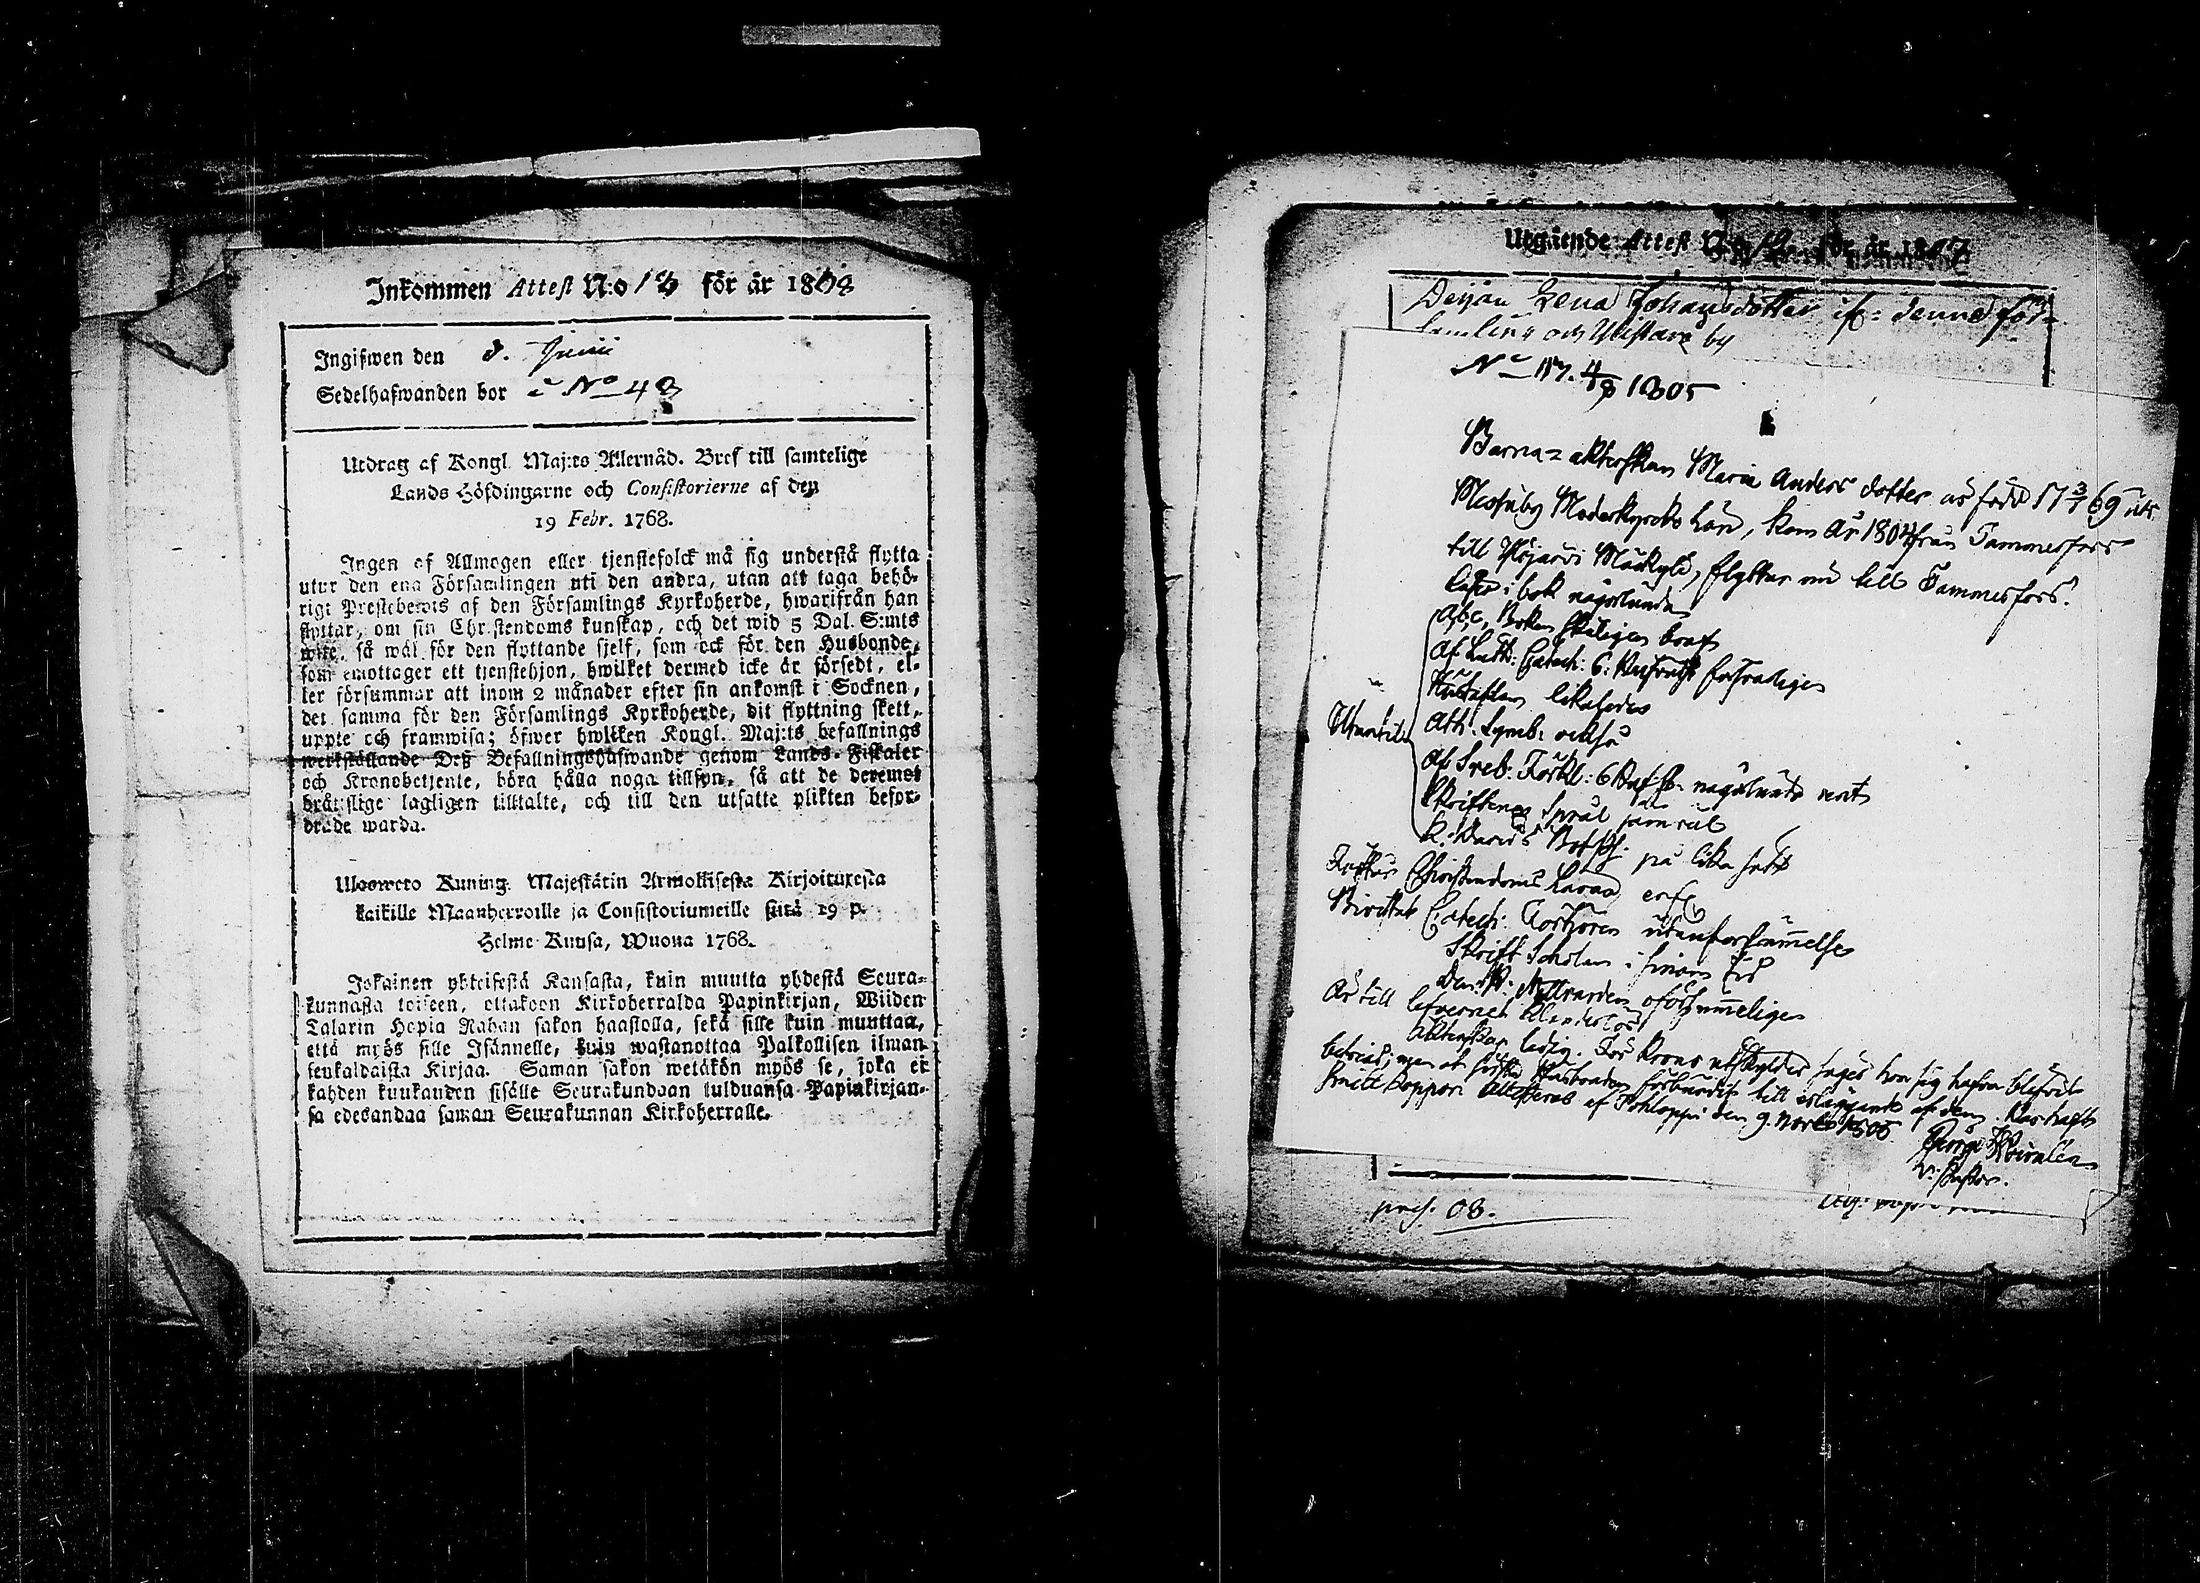 Inkommen Attest N:o 13 för år 1808
Ingifwen den 8. Junii
Sedelhafwanden bor i No 48
Utdrag af Kongl. Maj:ts Allernåd. Bref till samtelige
Lands Höfdingarne och Consistorierne af den
19 Febr. 1768.
Ingen af Allmogen eller tjenstefolck må sig understå flytta
utur den ena Församlingen uti den andra, utan att taga behö-
rigt Prestebewis af den Församlings Kyrkoherde, hwarifrån han
flyttar, om sin Christendoms kunskap, och det wid 5 Dal. S:mts
wite, så wäl för den flyttande sjelf, som ock för den Husbonde,
som emottager ett tjenstehjon, hwilket dermed icke är försedt, el-
ler försummar att inom 2 månader efter sin ankomst i Socknen,
det samma för den Församlings Kyrkoherde, dit flyttning skett,
uppte och framwisa; öfwer hwilken Kongl. Maj:ts befallnings
werkställande Deß Befallningshafwande genom Lands-Fiskaler
och Kronobetjente, böra hålla noga tillsyn, så att de deremot
brottslige lagligen tilltalte, och till den utsatte plikten befor-
drade warda.
Uloswero Kuning. Majestätin Armollisesta Kirjoituxesta
kaikille Maanherroille ja Consistoriumeille siitä 19 p.
Helme-Kuusa, Wuonna 1768.
Jokainen yhteisestä Kansasta, kuin muutta yhdestä Seura-
kunnasta toiseen, ottakoon Kirkoherralda Papinkirjan, Wiiden
Talarin Hopia Rahan sakon haastolla, sekä sille kuin muuttaa,
että myös sille Isännelle, kuin wastanottaa Palkollisen ilman
seukaldaista Kirjaa. Saman sakon wetäkön myös se, joka ei
kahden kuukauden sisälle Seurakundaan tulduansa Papinkirjan-
sa edesandaa saman Seurakunnan Kirkoherralle.
Utgående Attest N:o 12 för år 1807
Pigan Lena Johansdotter ifr: denna för-
samling och by
No 117. 4/8 1805
Barna-akterskan Maria Anders dotter är född 17 3/7 69 uti
Mosuby Moderkyrcko härn, kom År 1804 från Tammerfors
till Ylöjärvi Mäckylä, flyttar nu till Tammerfors.
Läser i bok någorlunda
Abc, Boken skäligen braf
Af Luth: Catech: 6: Hufvudst försvarligen
Hustaflan likaledes
Ath: Symb: också
Af Sveb: Förkl: 6 någorlunda rent
Skriftenes Språk jämväl
K: Davids Botps: på lika sätt
Utantill
Förstår Christendoms Läran
Bivistat Catech: förhören utan försummelse
Skrift Scholan i sinom tid
Den H: Nattvarden oförsummeligen
Är till lefvernet klanderlös
Äktenskap ledig. För Krono utskylder säger hon sig hafva blifvit
befriad; men at förra Husbonden förbundit till erläggande af dem.
Attesteras af Pohtoppi den 9. 1805
George
V: Pastor.
præs. 08.